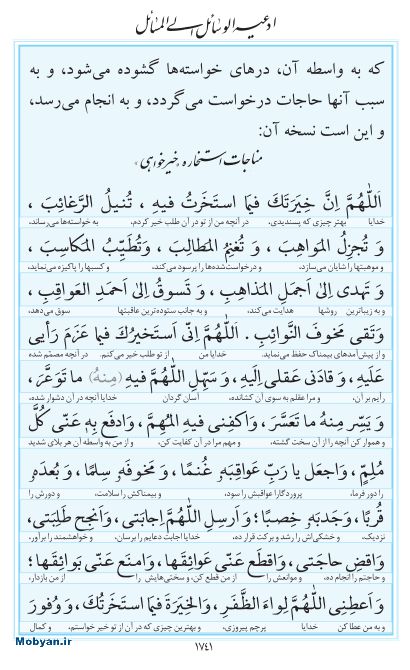 ادعیه الوسائل الی المسائل
که به واسطه آن، درهای خواسته‌ها گشوده می‌شود، و به
سبب آنها حاجات درخواست می‌گردد، و به انجام می‌رسد،
و این است نسخه آن:
مناجات استخاره «خیرخواهی»
اَللّٰهُمَّ اِنَّ خِیَرَتَكَ فیمَا استَخَرتُ فیهِ ، تُنیلُ الرَّغائِبَ ،
خدایا بهتر چیزی که پسندیدی، در آنچه من از تو در آن طلب خیر کردم، به خواسته‌ها می‌رساند،
وَ تُجزِلُ المَواهِبَ ، وَ تُغنِمُ المَطالِبَ ، وَتُطَیِّبُ المَکاسِبَ ،
و موهبتها را شایان می‌سازد، و درخواست‌شده‌ها را پرسود می‌کند، و کسبها را پاکیزه می‌نماید،
وَ تَهدی اِلیٰ اَجمَلِ المَذاهِبِ ، وَ تَسوقُ اِلیٰ اَحمَدِ العَواقِبِ ،
و به زیباترین روشها هدایت می‌کند، و به جانب ستوده‌ترین عاقبتها سوق می‌دهد،
وَتَقی مَخوفَ النَّوائِبِ . اَللّٰهُمَّ اِنّی اَستَخیرُكَ فیما عَزَمَ رَأیی
و از پیش آمدهای بیمناک حفظ می‌نماید. خدایا من از تو طلب خیر می‌کنم در آنچه مصمّم شده
عَلَیهِ ، وَ قادَنی عَقلی اِلَیهِ ، وَ سَهِّلِ اللّٰهُمَّ فیهِ (مِنهُ) ما تَوَعَّرَ ،
رأیم بر آن، و مرا عقلم به سوی آن کشانده، آسان گردان خدایا آنچه در آن دشوار شده،
وَ یَسِّر مِنهُ ما تَعَسَّرَ ، وَاکفِنی فیهِ المُهِمَّ ، وَادفَع بِهِ عَنّی کُلَّ
و هموار کن آنچه را از آن سخت گشته، و مهم مرا در آن کفایت کن، و از من به واسطه آن هر بلای شدید
مُلِمٍّ ، وَاجعَل یا رَبِّ عَواقِبَهُ غُنمًا ، وَ مَخوفَهُ سِلمًا ، وَ بُعدَهُ
را دور فرما، پروردگارا عواقبش را سود، و بیمناکش را سلامت، و دورش را
قُربًا ، وَجَدبَهُ خِصبًا ؛ وَاَرسِلِ اللّٰهُمَّ اِجابَتی ، وَاَنجِح طَلِبَتی ،
نزدیک، و خشکی‌اش را رشد و برکت قرار ده، خدایا اجابت دعایم را برسان، و خواهشمند را برآور،
وَاقضِ حاجَتی ، وَاقطَع عَنّی عَوائِقَها ، وَامنَع عَنّی بَوائِقَها ؛
و حاجتم را انجام ده، و موانعش را از من قطع کن، و سختی‌هایش را از من بازدار،
وَ اَعطِنِی اللّٰهُمَّ لِواءَ الظَّفَرِ ، وَالخِیَرَةَ فیمَا استَخَرتُكَ ، وَ وُفورَ
و به من عطا کن خدایا پرچم پیروزی، و بهترین چیزی که در آن از تو خیر خواستم، و کمال
۱۷۴۱
Mobyan.ir